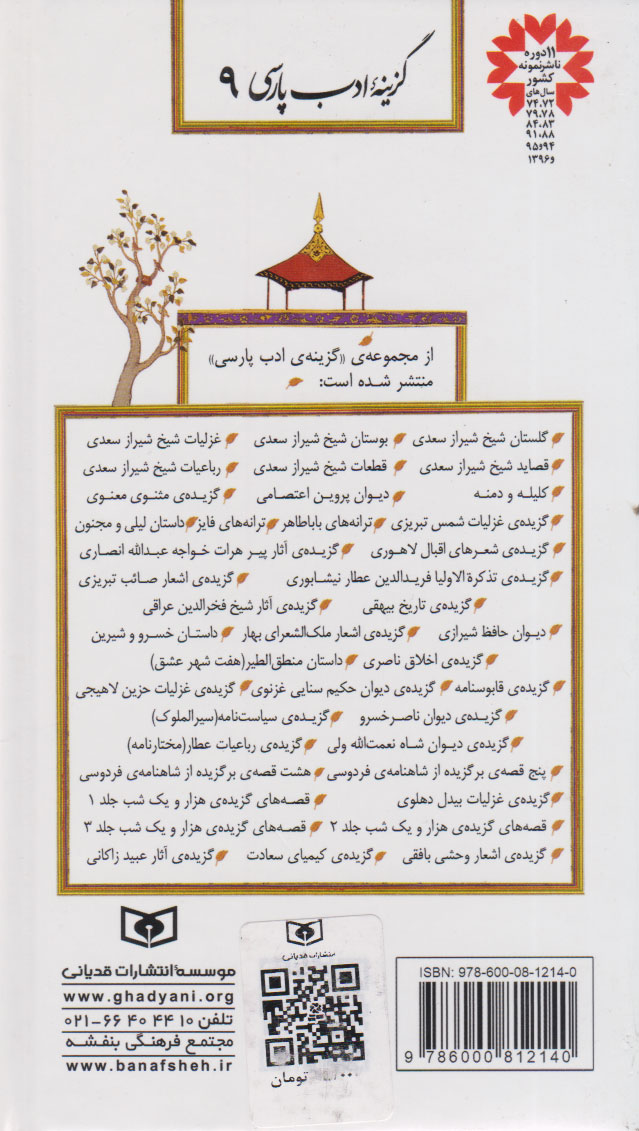 گزینهٔ ادب پارسی ۹
۱۱ دوره
ناشر نمونه
کشور
سال‌های
۷۴.۷۲
۷۹.۷۸
۸۴.۸۳
۹۱.۸۸
۹۴و۹۵
و۱۳۹۶
از مجموعه‌ی «گزینه‌ی ادب پارسی»
منتشر شده است:
گلستان شیخ شیراز سعدی بوستان شیخ شیراز سعدی غزلیات شیخ شیراز سعدی
قصاید شیخ شیراز سعدی قطعات شیخ شیراز سعدی رباعیات شیخ شیراز سعدی
کلیله و دمنه دیوان پروین اعتصامی گزیده‌ی مثنوی معنوی
گزیده‌ی غزلیات شمس تبریزی ترانه‌های باباطاهر ترانه‌های فایز داستان لیلی و مجنون
گزیده‌ی شعرهای اقبال لاهوری گزیده‌ی آثار پیر هرات خواجه عبدالله انصاری
گزیده‌ی تذکرة الاولیا فریدالدین عطار نیشابوری گزیده‌ی اشعار صائب تبریزی
گزیده‌ی تاریخ بیهقی گزیده‌ی آثار شیخ فخرالدین عراقی
دیوان حافظ شیرازی گزیده‌ی اشعار ملک‌الشعرای بهار داستان خسرو و شیرین
گزیده‌ی اخلاق ناصری داستان منطق‌الطیر(هفت شهر عشق)
گزیده‌ی قابوسنامه گزیده‌ی دیوان حکیم سنایی غزنوی گزیده‌ی غزلیات حزین لاهیجی
گزیده‌ی دیوان ناصرخسرو گزیده‌ی سیاست‌نامه(سیرالملوک)
گزیده‌ی دیوان شاه نعمت‌الله ولی گزیده‌ی رباعیات عطار(مختارنامه)
پنج قصه‌ی برگزیده از شاهنامه‌ی فردوسی هشت قصه‌ی برگزیده از شاهنامه‌ی فردوسی
گزیده‌ی غزلیات بیدل دهلوی قصه‌های گزیده‌ی هزار و یک شب جلد ۱
قصه‌های گزیده‌ی هزار و یک شب جلد ۲ قصه‌های گزیده‌ی هزار و یک شب جلد ۳
گزیده‌ی اشعار وحشی بافقی گزیده‌ی کیمیای سعادت گزیده‌ی آثار عبید زاکانی
موسسهٔ انتشارات قدیانی
www.ghadyani.org
تلفن ۱۰ ۴۴ ۴۰ ۶۶-۰۲۱
مجتمع فرهنگی بنفشه
www.banafsheh.ir
انتشارات قدیانی
تومان
ISBN: 978-600-08-1214-0
9 786000 812140